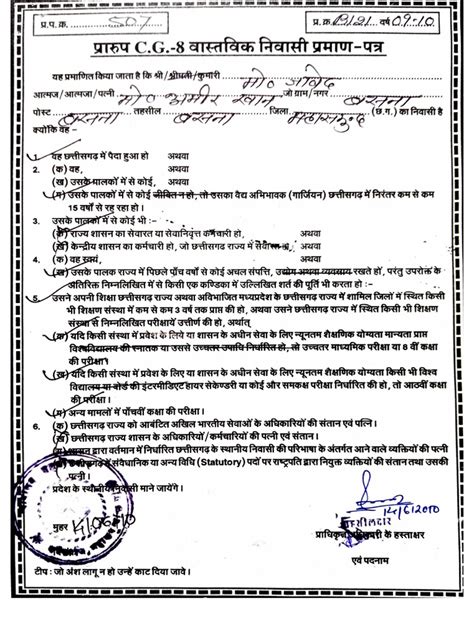 प्र.प.क्र. 507
प्र.क्र. B/121 वर्ष 09-10
प्रारुप C.G.-8 वास्तविक निवासी प्रमाण-पत्र
यह प्रमाणित किया जाता है कि श्री/श्रीमती/कुमारी मो० जावेद
आत्मज/आत्मजा/पत्नी मो० अमीर खान जो ग्राम/नगर बसना
पोस्ट बसना तहसील बसना जिला महासमुन्द (छ.ग.) का निवासी है
क्योंकि वह -
1. यह छत्तीसगढ़ में पैदा हुआ हो अथवा
2. (क) वह, अथवा
(ख) उसके पालकों में से कोई, अथवा
(ग) उसके पालकों में से कोई जीवित न हो, तो उसका वैद्य अभिभावक (गार्जियन) छत्तीसगढ़ में निरंतर कम से कम
15 वर्षो से रह रहा हो।
3. उसके पालकों में से कोई भी :-
(क) राज्य शासन का सेवारत या सेवानिवृत्त कर्मचारी हो, अथवा
(ख) केन्द्रीय शासन का कर्मचारी हो, जो छत्तीसगढ़ राज्य में सेवारत हो, अथवा
4. (क) वह स्वयं, अथवा
(ख) उसके पालक राज्य में पिछले पाँच वर्षों से कोई अचल संपत्ति, उद्योग अथवा व्यवसाय रखते हों, परंतु उपरोक्त के
अतिरिक्त निम्नलिखित में से किसी एक कण्डिका में उल्लिखित शर्त की पूर्ति भी करता हो :-
5. उसने अपनी शिक्षा छत्तीसगढ़ राज्य अथवा अविभाजित मध्यप्रदेश के छत्तीसगढ़ राज्य में शामिल जिलों में स्थित किसी
भी शिक्षण संस्था में कम से कम 3 वर्ष तक प्राप्त की हो, अथवा उसने छत्तीसगढ़ राज्य में स्थित किसी भी शिक्षण
संस्था से निम्नलिखित परीक्षायें उत्तीर्ण की हो, अर्थात्
(क) यदि किसी संस्था में प्रवेश के लिये या शासन के अधीन सेवा के लिए न्यूनतम शैक्षणिक योग्यता मान्यता प्राप्त
विश्वविद्यालय की स्नातक या उससे उच्चतर उपाधि निर्धारित हो, तो उच्चतर माध्यमिक परीक्षा या 8 वीं कक्षा
की परीक्षा।
(ख) यदि किसी संस्था में प्रवेश के लिये या शासन के अधीन सेवा के लिए न्यूनतम शैक्षणिक योग्यता किसी भी विश्व
विद्यालय या बोर्ड की इंटरमीडिएट हायर सेकेण्डरी या कोई और समकक्ष परीक्षा निर्धारित की हो, तो आठवीं कक्षा
की परीक्षा।
(ग) अन्य मामलों में पाँचवीं कक्षा की परीक्षा।
6. (क) छत्तीसगढ़ राज्य को आबंटित अखिल भारतीय सेवाओं के अधिकारियों की संतान एवं पत्नि।
(ख) छत्तीसगढ़ शासन के अधिकारियों/कर्मचारियों की पत्नी एवं संतान।
(ग) शासन द्वारा वर्तमान में निर्धारित छत्तीसगढ़ के स्थानीय निवासी की परिभाषा के अंतर्गत आने वाले व्यक्तियों की पत्नी
छत्तीसगढ़ में संवैधानिक या अन्य विधि (Statutory) पदों पर राष्ट्रपति द्वारा नियुक्त व्यक्तियों की संतान तथा उसकी
पत्नी।
प्रदेश के स्थानीय निवासी माने जायेंगे।
14/6/2010
मुहर 14/06/10
तहसीलदार
प्राधिकृत अधिकारी के हस्ताक्षर
एवं पदनाम
टीप : जो अंश लागू न हो उन्हें काट दिया जावे।